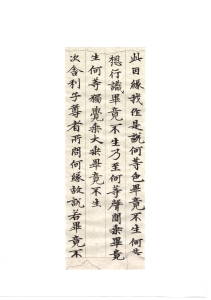 此因緣我作是說何等色畢竟不生何等受
想行識畢竟不生乃至何等聲聞乘畢竟不
生何等獨覺乘大乘畢竟不生
次舍利子尊者所問何緣故說若畢竟不